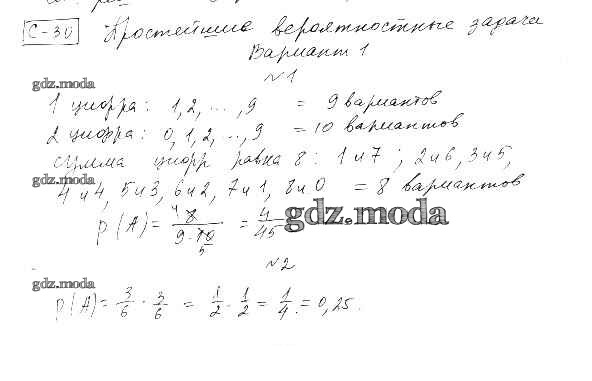 С-30 Простейшие вероятностные задачи
Вариант 1
№1
gdz.moda
1 цифра: 1,2, ..., 9 = 9 вариантов
2 цифра: 0,1,2, .., 9 = 10 вариантов
сумма цифр равна 8: 1 и 7; 2 и 6, 3 и 5,
gdz.moda
4 и 4, 5 и 3, 6 и 2, 7 и 1, 8 и 0 = 8 вариантов
P(A) = 4 8 / 9·10 5 = 4/45
gdz.moda
№2
gdz.moda
P(A) = 3/6 · 3/6 = 1/2 · 1/2 = 1/4 = 0,25.